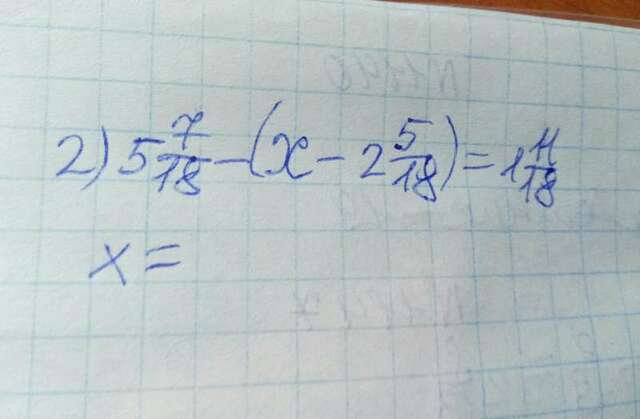 2) 5 7/18 - (x - 2 5/18) = 1 11/18
x =